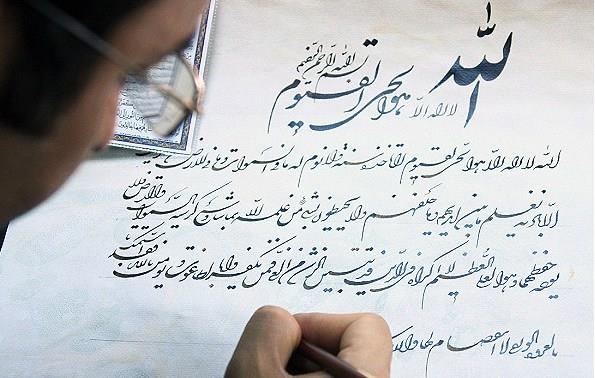 الله
بسم الله الرحمن الرحیم
لا اله الا هو الحی القیوم
الله لا اله الا هو الحی القیوم لا تأخذه سنة و لا نوم له ما فی السموات و ما فی الارض
الا باذنه یعلم ما بین ایدیهم و ما خلفهم و لا یحیطون بشیء من علمه الا بما شاء وسع کرسیه السموات والارض ولا
یؤده حفظهما و هو العلی العظیم لا اکراه فی الدین قد تبین الرشد من الغی فمن یکفر بالطاغوت و یؤمن بالله فقد استمسک
بالعروة الوثقی لا انفصام لها والله